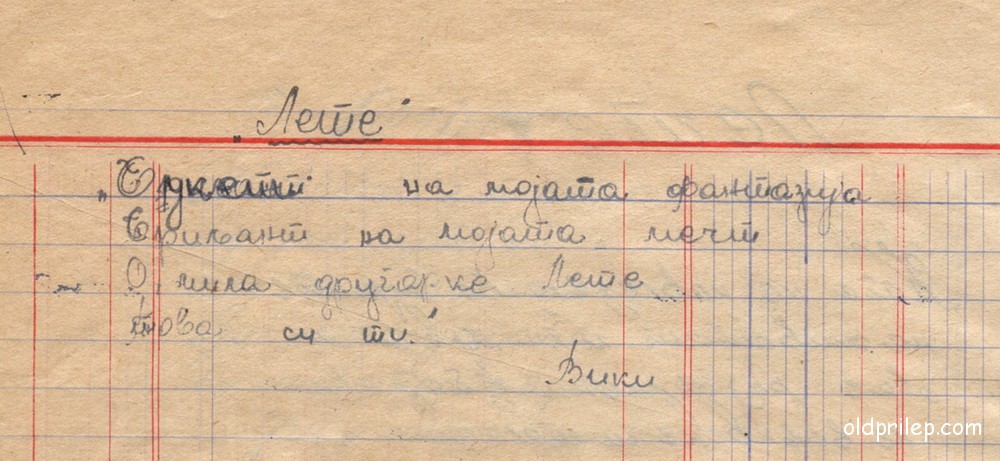 „Лете"
на мојата фантазија
Брилјант на мојата мечт
О мила другарке Лете
Това си ти!
Вики
oldprilep.com